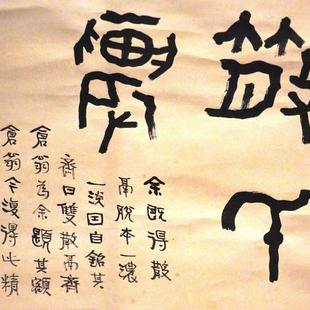 余既得散
鬲脫本一濃
一淡因自銘其
齊曰雙散鬲齊
倉翁為余題其額
倉翁今復得此精